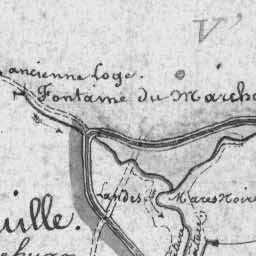 V'
ancienne loge.
Fontaine du March
Landes
Mares Noire
uille.